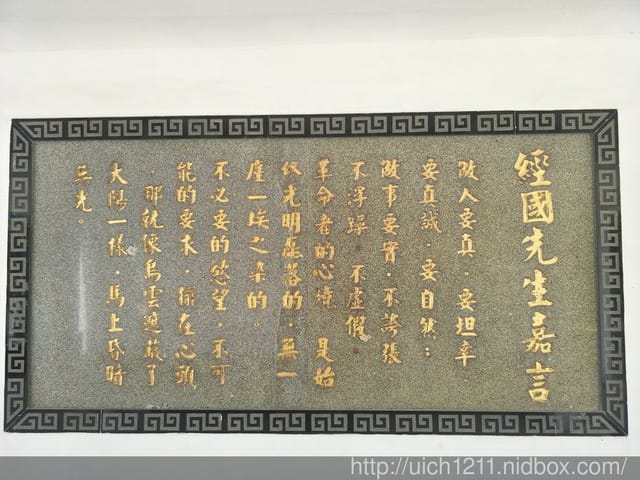 經國先生嘉言
做人要真．要坦率．
要真誠．要自然；
做事要實．不誇張
不浮躁．不虛假。
革命者的心境．是始
終光明磊落的．無一
塵一埃之染的。
不必要的慾望．不可
能的要求．擺在心頭
．那就像烏雲遮蔽了
太陽一樣．馬上昏暗
無光。
http://uich1211.nidbox.com/